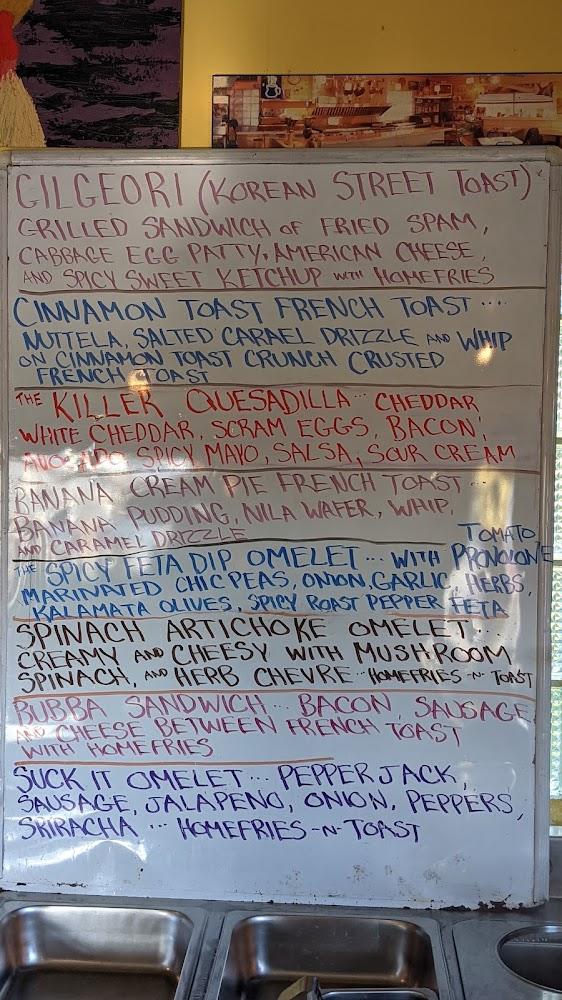 GILGEORI (KOREAN STREET TOAST)
GRILLED SANDWICH OF FRIED SPAM,
CABBAGE EGG PATTY, AMERICAN CHEESE,
AND SPICY SWEET KETCHUP WITH HOMEFRIES
CINNAMON TOAST FRENCH TOAST ....
NUTTELA, SALTED CARAEL DRIZZLE AND WHIP
ON CINNAMON TOAST CRUNCH CRUSTED
FRENCH TOAST
THE KILLER QUESADILLA... CHEDDAR,
WHITE CHEDDAR, SCRAM EGGS, BACON,
AVOCADO SPICY MAYO, SALSA, SOUR CREAM
BANANA CREAM PIE FRENCH TOAST...
BANANA PUDDING, NILA WAFER, WHIP,
AND CARAMEL DRIZZLE
THE SPICY FETA DIP OMELET... WITH TOMATO PROVOLONE
MARINATED CHICPEAS, ONION, GARLIC, HERBS,
KALAMATA OLIVES, SPICY ROAST PEPPER FETA
SPINACH ARTICHOKE OMELET...
CREAMY AND CHEESY WITH MUSHROOM,
SPINACH, AND HERB CHEVRE... HOMEFRIES -N- TOAST
BUBBA SANDWICH... BACON, SAUSAGE
AND CHEESE BETWEEN FRENCH TOAST
WITH HOMEFRIES
SUCK IT OMELET... PEPPER JACK,
SAUSAGE, JALAPENO, ONION, PEPPERS,
SRIRACHA ... HOMEFRIES -N- TOAST